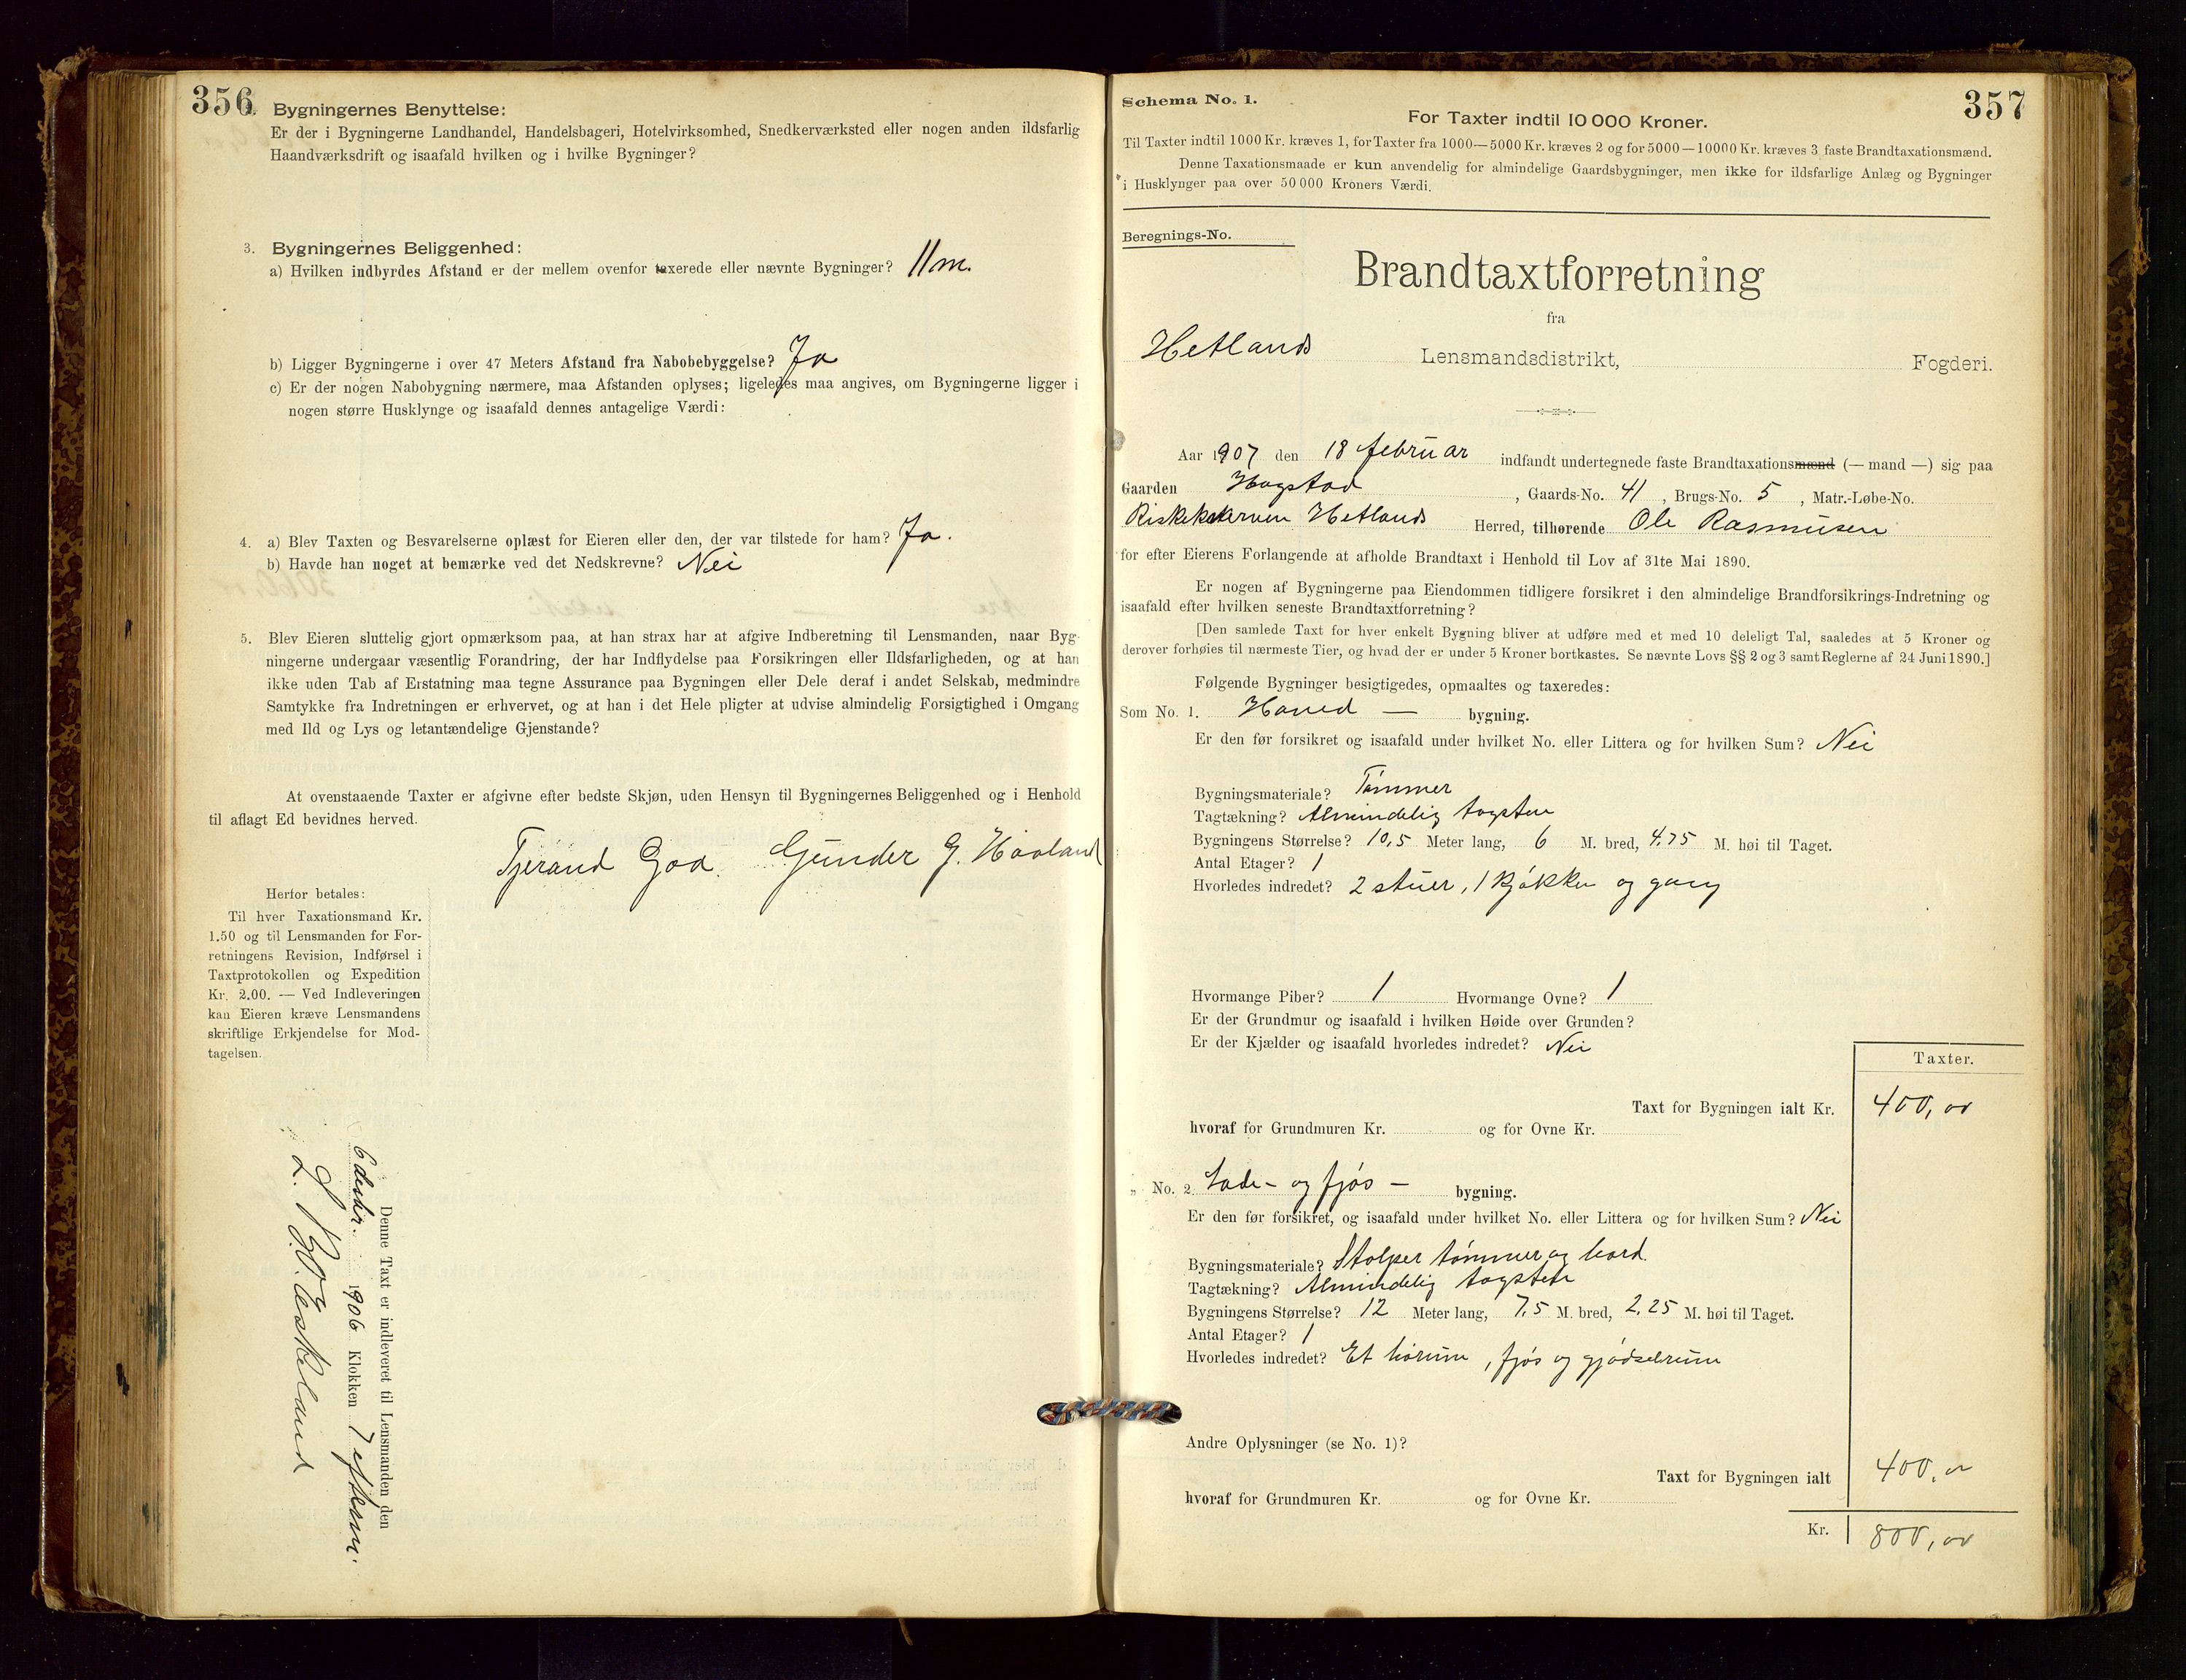 356
Bygningernes Benyttelse:
Er der i Bygningerne Landhandel, Handelsbageri, Hotelvirksomhed, Snedkerværksted eller nogen anden ildsfarlig
Haandværksdrift og isaafald hvilken og i hvilke Bygninger?
3. Bygningernes Beliggenhed:
a) Hvilken indbyrdes Afstand er der mellem ovenfor taxerede eller nævnte Bygninger? 11 m.
b) Ligger Bygningerne i over 47 Meters Afstand fra Nabobebyggelse? Ja
c) Er der nogen Nabobygning nærmere, maa Afstanden oplyses; ligeledes maa angives, om Bygningerne ligger i
nogen større Husklynge og isaafald dennes antagelige Værdi:
4. a) Blev Taxten og Besvarelserne oplæst for Eieren eller den, der var tilstede for ham? Ja.
b) Havde han noget at bemærke ved det Nedskrevne? Nei
5. Blev Eieren sluttelig gjort opmærksom paa, at han strax har at afgive Indberetning til Lensmanden, naar Byg-
ningerne undergaar væsentlig Forandring, der har Indflydelse paa Forsikringen eller Ildsfarligheden, og at han
ikke uden Tab af Erstatning maa tegne Assurance paa Bygningen eller Dele deraf i andet Selskab, medmindre
Samtykke fra Indretningen er erhvervet, og at han i det Hele pligter at udvise almindelig Forsigtighed i Omgang
med Ild og Lys og letantændelige Gjenstande?
At ovenstaaende Taxter er afgivne efter bedste Skjøn, uden Hensyn til Bygningernes Beliggenhed og i Henhold
til aflagt Ed bevidnes herved.
Tjerand Goa. Gunder G. Haaland
Herfor betales:
Til hver Taxationsmand Kr.
1.50 og til Lensmanden for For-
retningens Revision, Indførsel i
Taxtprotokollen og Expedition
Kr. 2.00. — Ved Indleveringen
kan Eieren kræve Lensmandens
skriftlige Erkjendelse for Mod-
tagelsen.
Denne Taxt er indleveret til Lensmanden den
6 desbr. 1906 Klokken 7 efterm.
Eskeland
Schema No. 1.
357
For Taxter indtil 10 000 Kroner.
Til Taxter indtil 1000 Kr. kræves 1, for Taxter fra 1000—5000 Kr. kræves 2 og for 5000—10000 Kr. kræves 3 faste Brandtaxationsmænd.
Denne Taxationsmaade er kun anvendelig for almindelige Gaardsbygninger, men ikke for ildsfarlige Anlæg og Bygninger
i Husklynger paa over 50 000 Kroners Værdi.
Beregnings-No.
Brandtaxtforretning
fra
Hetlands Lensmandsdistrikt, Fogderi.
Aar 1907 den 18 februar indfandt undertegnede faste Brandtaxationsmænd (— mand —) sig paa
Gaarden Hogstad, Gaards-No. 41, Brugs-No. 5, Matr.-Løbe-No.
Hetlands Herred, tilhørende Ole Rasmusen
for efter Eierens Forlangende at afholde Brandtaxt i Henhold til Lov af 31te Mai 1890.
Er nogen af Bygningerne paa Eiendommen tidligere forsikret i den almindelige Brandforsikrings-Indretning og
isaafald efter hvilken seneste Brandtaxtforretning?
[Den samlede Taxt for hver enkelt Bygning bliver at udføre med et med 10 deleligt Tal, saaledes at 5 Kroner og
derover forhøies til nærmeste Tier, og hvad der er under 5 Kroner bortkastes. Se nævnte Lovs §§ 2 og 3 samt Reglerne af 24 Juni 1890.]
Følgende Bygninger besigtigedes, opmaaltes og taxeredes:
Som No. 1. Hoved — bygning.
Er den før forsikret og isaafald under hvilket No. eller Littera og for hvilken Sum? Nei
Bygningsmateriale? Tømmer
Tagtækning? Almindelig tagsten
Bygningens Størrelse? 10,5 Meter lang, 6 M. bred, 4,75 M. høi til Taget.
Antal Etager? 1
Hvorledes indredet? 2 stuer, 1 kjøkken og gang
Hvormange Piber? 1 Hvormange Ovne? 1
Er der Grundmur og isaafald i hvilken Høide over Grunden?
Er der Kjælder og isaafald hvorledes indredet? Nei
Taxter.
Taxt for Bygningen ialt Kr. 400,00
hvoraf for Grundmuren Kr. og for Ovne Kr.
„ No. 2 Lade- og fjøs — bygning.
Er den før forsikret, og isaafald under hvilket No. eller Littera og for hvilken Sum? Nei
Bygningsmateriale? Stolper tømmer og bord.
Tagtækning? Almindelig tagsten
Bygningens Størrelse? 12 Meter lang, 7,5 M. bred, 2,25 M. høi til Taget.
Antal Etager? 1
Hvorledes indredet? Et hørum, fjøs og gjødselrum
Andre Oplysninger (se No. 1)?
Taxt for Bygningen ialt 400,00
hvoraf for Grundmuren Kr. og for Ovne Kr.
Kr. 800,00